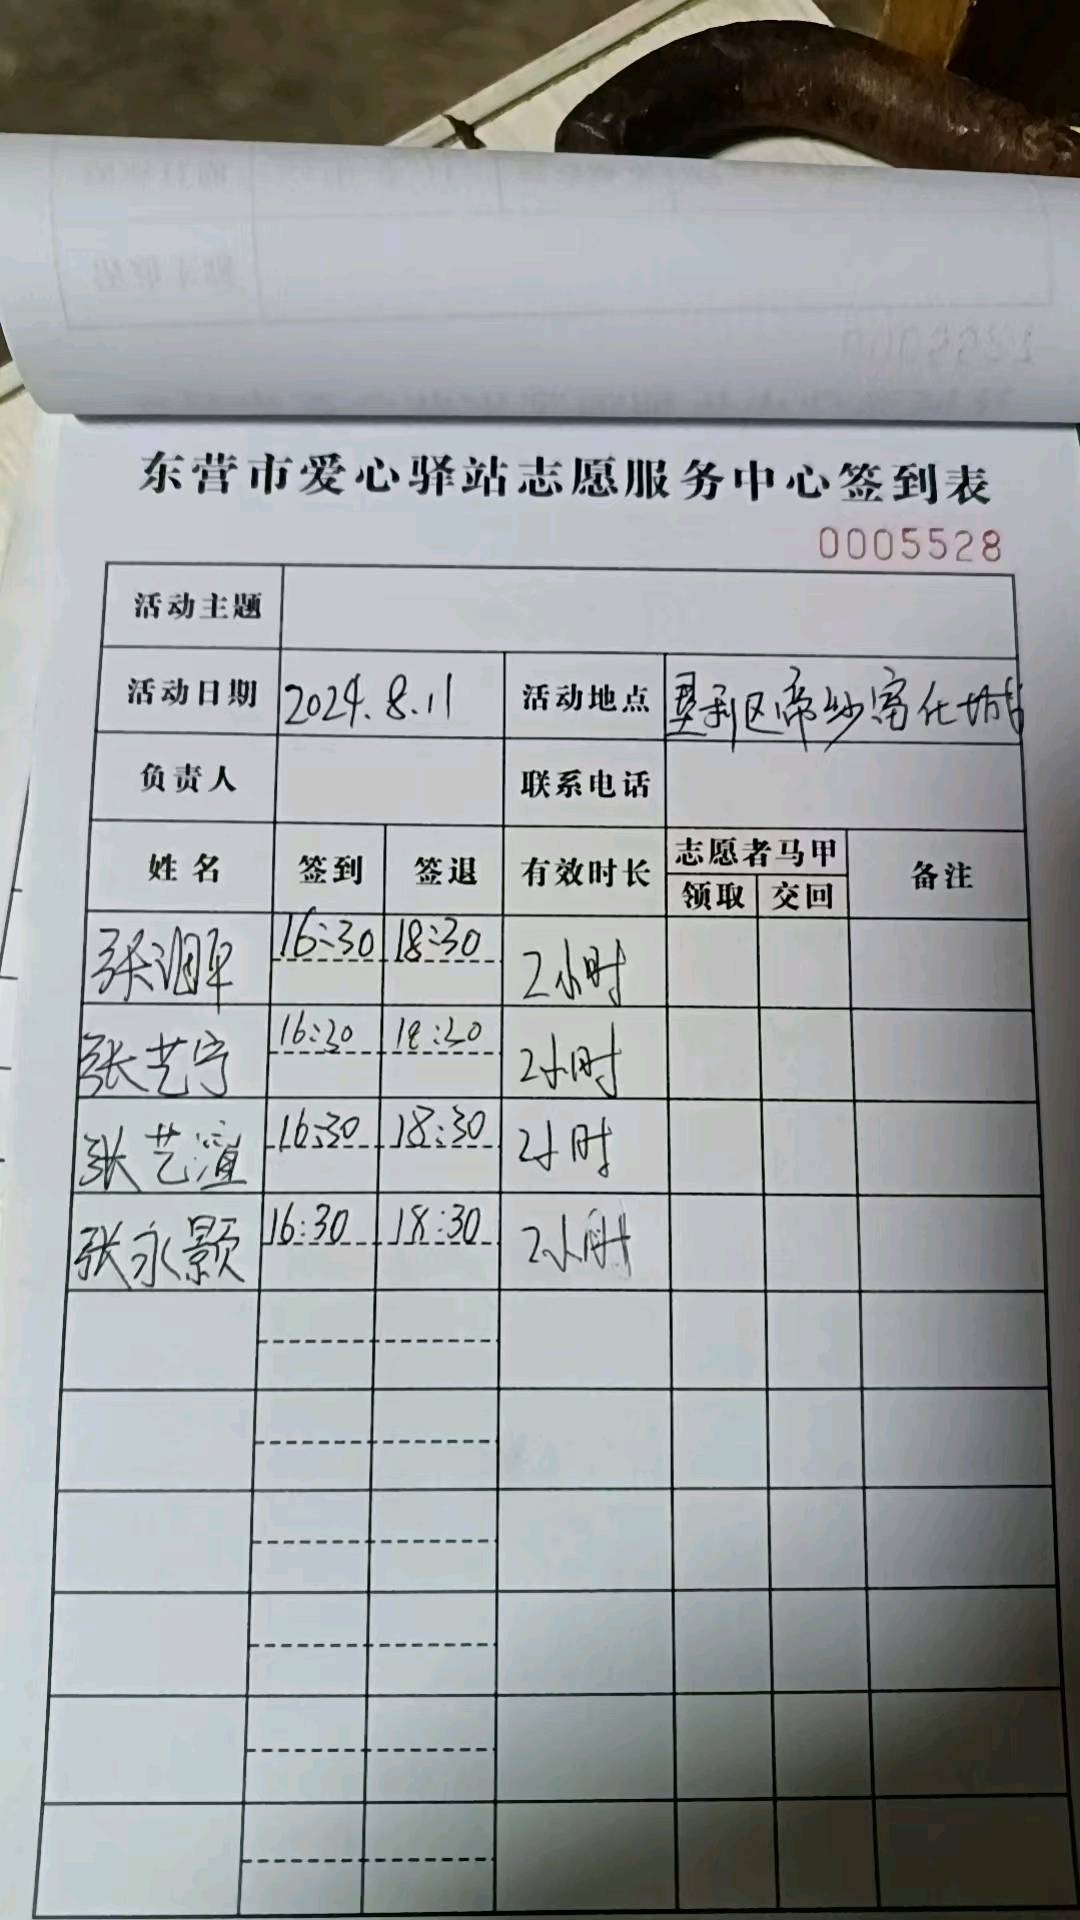 东营市爱心驿站志愿服务中心签到表
0005528
活动主题
活动日期 2024.8.11 活动地点 垦利区帝纱窗化城
负责人 联系电话
姓名 签到 签退 有效时长 志愿者马甲 备注
领取 交回
16:30 18:30 2小时
张艺宁 16:30 18:30 2小时
张艺渲 16:30 18:30 2小时
张永颢 16:30 18:30 2小时